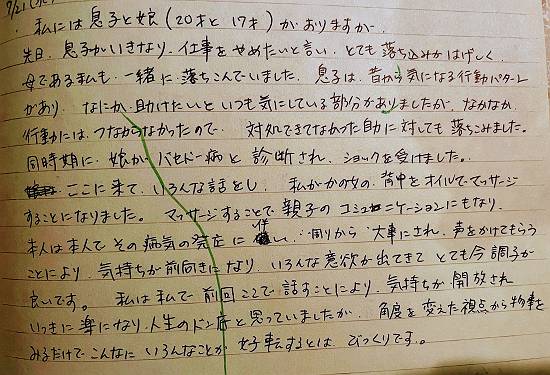 7/21(水)
私には息子と娘(20才と17才)がおりますが、
先日、息子がいきなり、仕事をやめたいと言い、とても落ち込みがはげしく、
母である私も、一緒に落ちこんでいました。息子は、昔から気になる行動パターン
があり、なにか助けたいといつも気にしている部分がありましたが、なかなか、
行動には、つながらなかったので、対処できてなかった自分に対しても落ちこみました。
同時期に、娘がバセドー病と診断され、ショックを受けました。
ここに来て、いろんな話をし、私が女の、背中をオイルでマッサージ
することになりました。マッサージすることで親子のコミュニケーションにもなり、
本人は本人で、その病気の発症に伴い、周りから大事にされ、声をかけてもらう
ことにより、気持ちが前向きになり、いろんな意欲が出てきて、とても今調子が
良いです。私は私で前回ここで話すことにより、気持ちが開放され
いっきに楽になり、人生のドン底と思っていましたが、角度を変えた視点から物事を
みるだけで、こんなにいろんなことが、好転するとは、びっくりです。